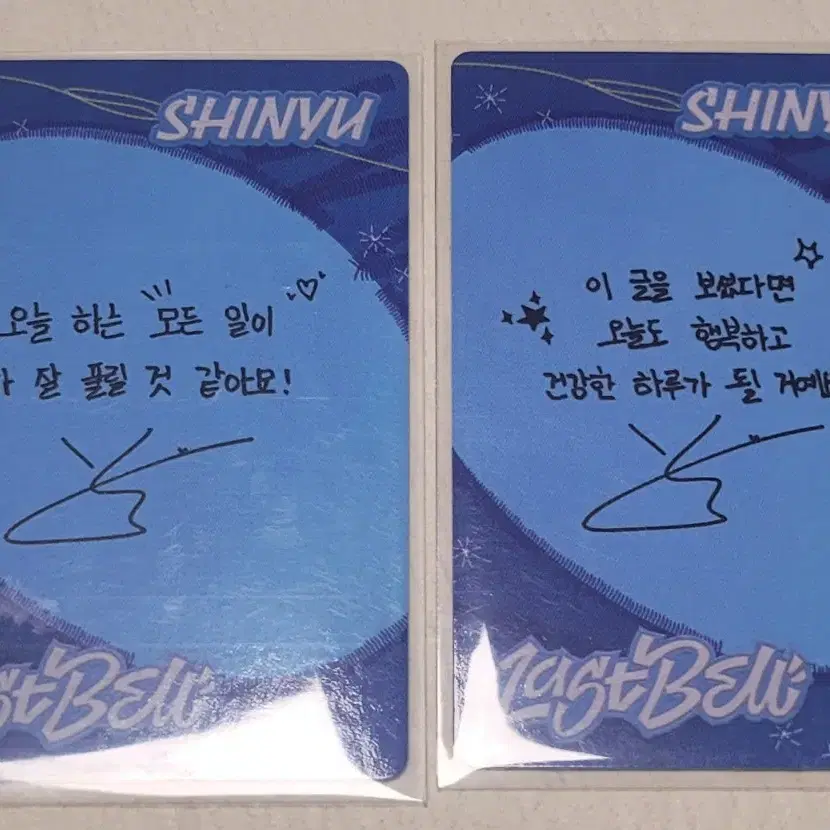 SHINYU
오늘 하는 모든 일이
잘 풀릴 것 같아요!
Bell
SHINY
이 글을 보셨다면
오늘도 행복하고
건강한 하루가 될
Last Bell